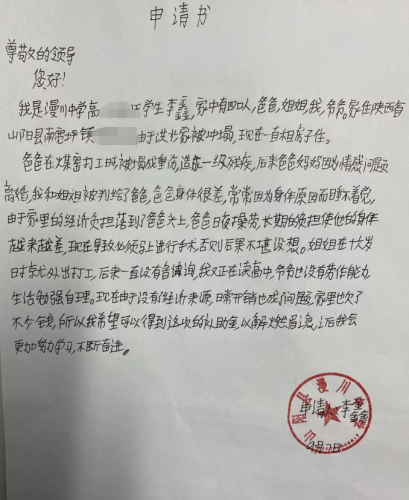 申请书
尊敬的领导
您好!
我是漫川中学高 学生李鑫,家中有四口人,爸爸,姐姐,我,爷爷。家住陕西省
山阳县南宽坪镇 由于 家被冲塌,现在一直租房子住。
爸爸在煤窑打工时被塌成重伤,造成一级残疾,后来爸爸妈妈因为情感问题
离婚,我和姐姐被判给了爸爸,爸爸身体很差,常常因为身体原因而睡不着觉,
由于家里的经济负担落到了爸爸头上,爸爸日夜操劳,长期的负担使他的身体
越来越差,现在导致必须马上进行手术,否则后果不堪设想。姐姐在十六岁
时就外出打工,后来一直没有音信,我又正在读高中,爷爷也没有劳作能力
生活勉强自理。现在由于没有经济来源,日常开销也成了问题,家里也欠了
不少钱,所以我希望可以得到这次的补助金,以解燃眉之急,之后我会
更加努力学习,不断奋进。
山阳县漫川
申请人 李鑫
月 日